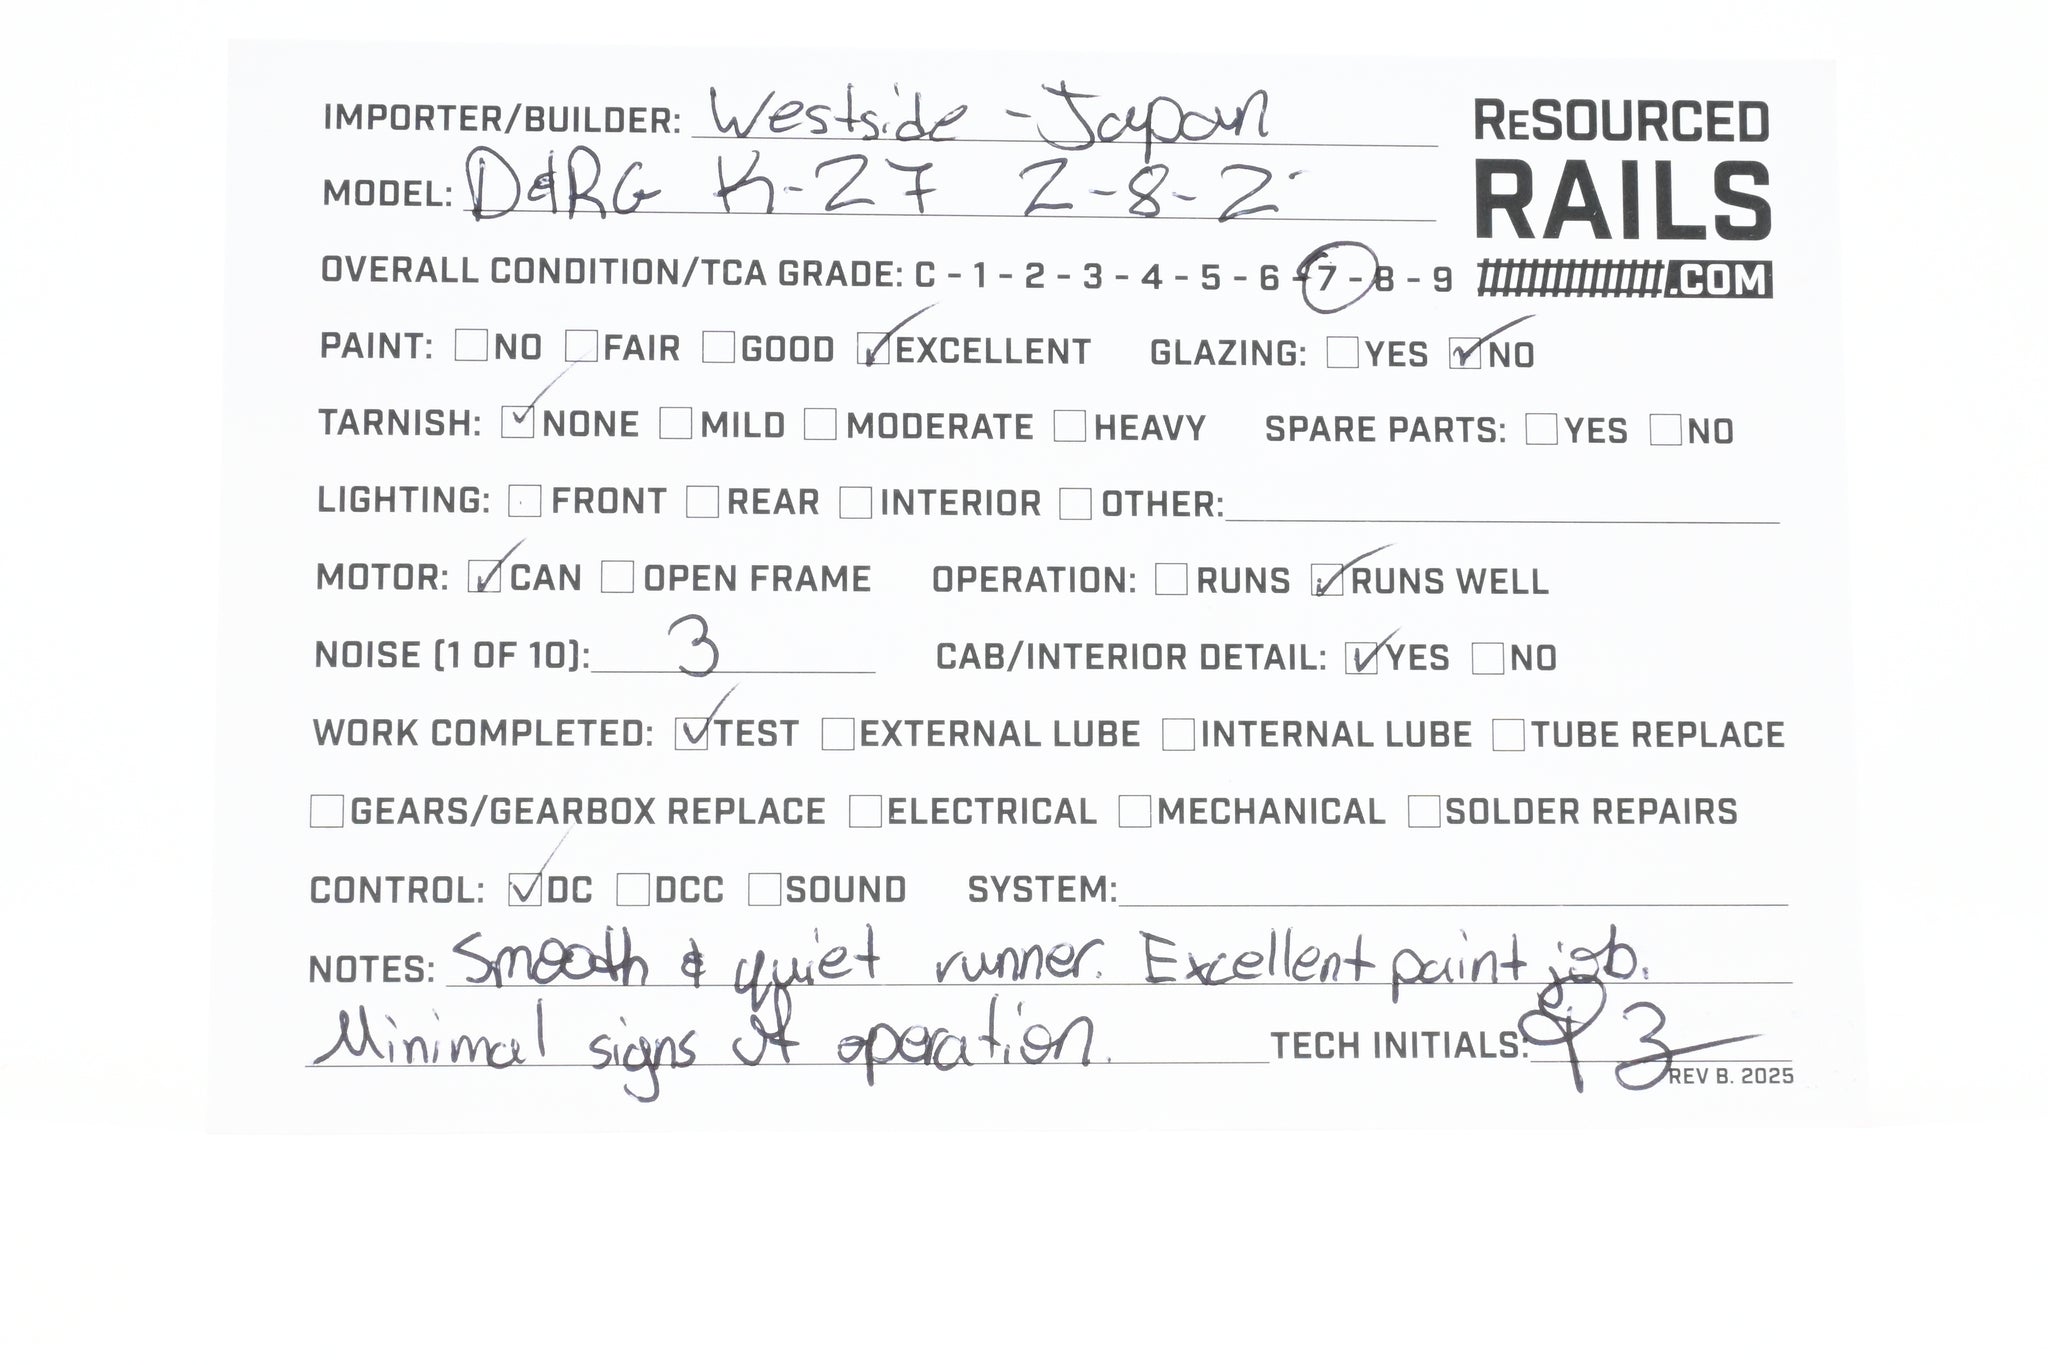 IMPORTER/BUILDER: Westside - Japan
ReSOURCED
RAILS
.COM
MODEL: D&RG K-27 2-8-2
OVERALL CONDITION/TCA GRADE: C - 1 - 2 - 3 - 4 - 5 - 6 - 7 - 8 - 9
PAINT: NO FAIR GOOD EXCELLENT GLAZING: YES NO
TARNISH: NONE MILD MODERATE HEAVY SPARE PARTS: YES NO
LIGHTING: FRONT REAR INTERIOR OTHER:
MOTOR: CAN OPEN FRAME OPERATION: RUNS RUNS WELL
NOISE (1 OF 10): 3 CAB/INTERIOR DETAIL: YES NO
WORK COMPLETED: TEST EXTERNAL LUBE INTERNAL LUBE TUBE REPLACE
GEARS/GEARBOX REPLACE ELECTRICAL MECHANICAL SOLDER REPAIRS
CONTROL: DC DCC SOUND SYSTEM:
NOTES: Smooth & quiet runner. Excellent paint job.
Minimal signs of operation. TECH INITIALS:
REV B. 2025